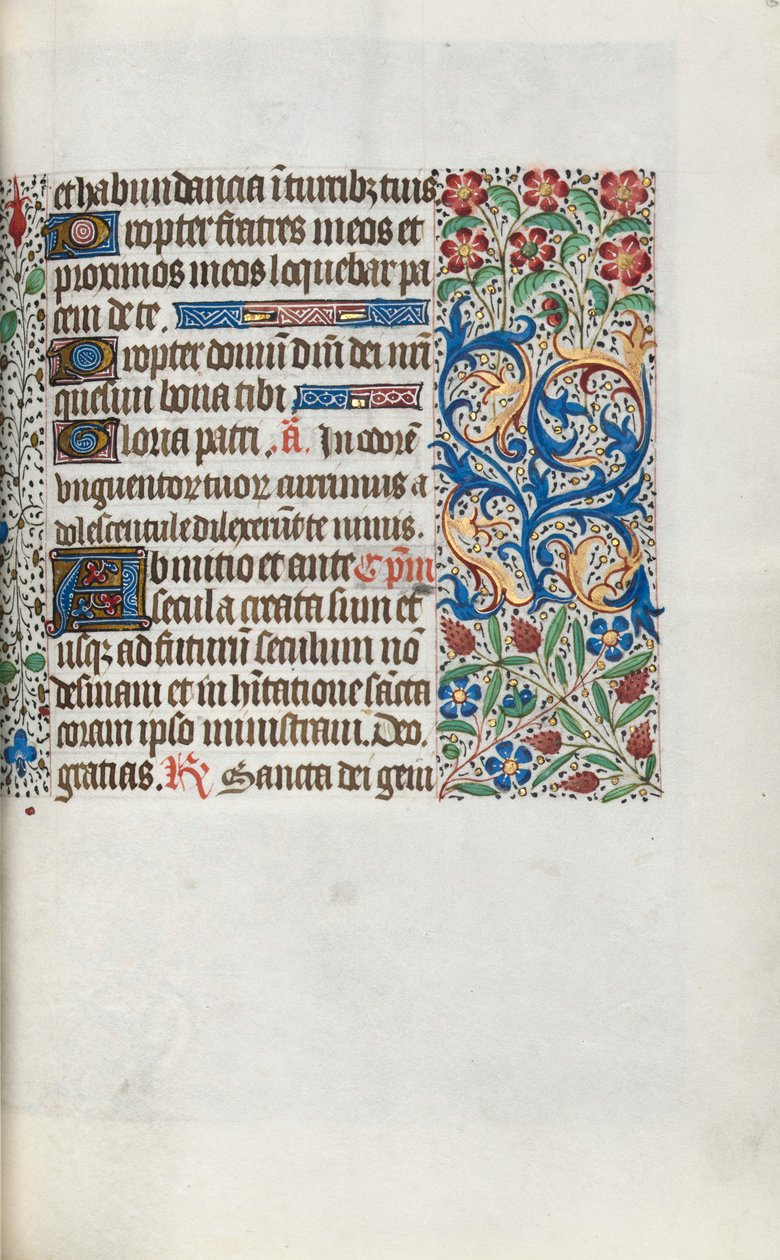 et habundancia ī turribꝫ tuis
Propter fratres meos et
proximos meos loquebar pa
cem de te.
Propter domū dñi dei nr̄i
quesiui bona tibi
Gloria patri. Ā. In odorē
vnguentoꝝ tuoꝝ currimus a
dolescentule dilexerūt te nimis.
Ab inicio et ante Cpm̄
secula creata sum et
usqꝫ ad futurū seculum nō
desinam et in hītatione sācta
coram ipso ministraui. Deo.
gratias. R̸ Sancta dei geni